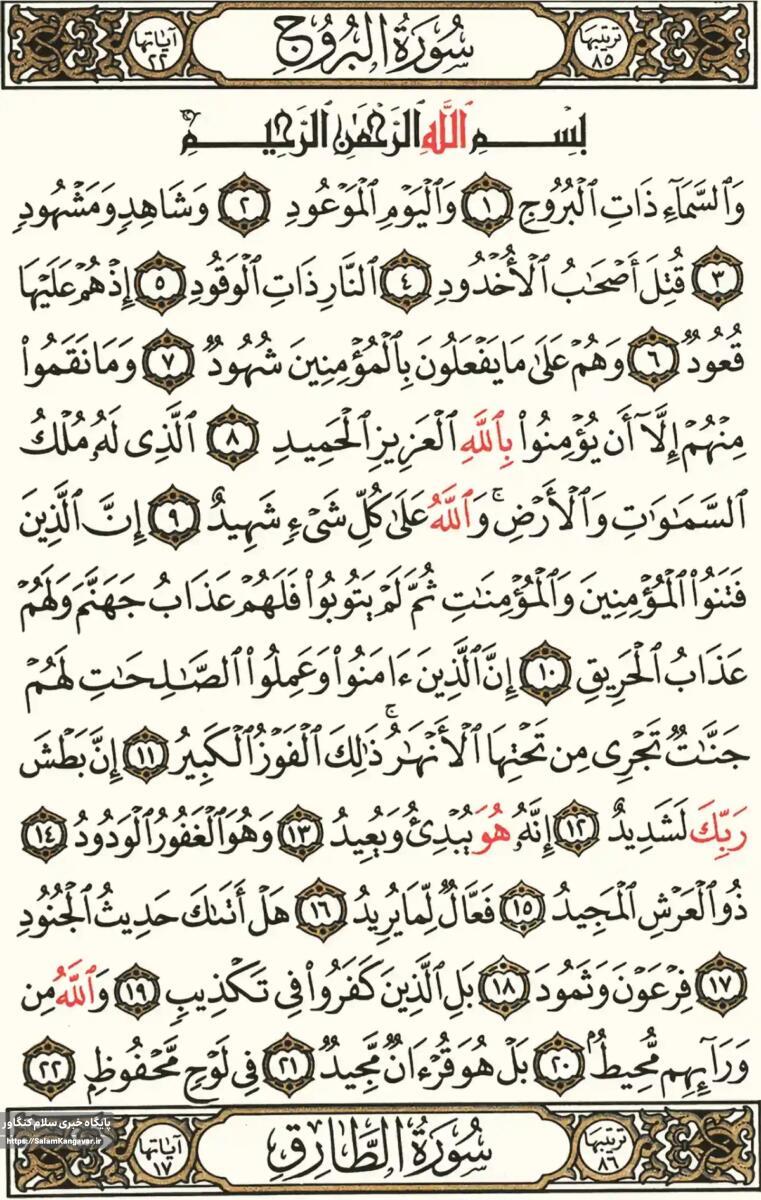 ترتيبها ٨٥ سُورَةُ الْبُرُوجِ آياتها ٢٢
بِسْمِ ٱللَّهِ ٱلرَّحْمَٰنِ ٱلرَّحِيمِ
وَٱلسَّمَآءِ ذَاتِ ٱلْبُرُوجِ ١ وَٱلْيَوْمِ ٱلْمَوْعُودِ ٢ وَشَاهِدٍ وَمَشْهُودٍ
٣ قُتِلَ أَصْحَٰبُ ٱلْأُخْدُودِ ٤ ٱلنَّارِ ذَاتِ ٱلْوَقُودِ ٥ إِذْ هُمْ عَلَيْهَا
قُعُودٌ ٦ وَهُمْ عَلَىٰ مَا يَفْعَلُونَ بِٱلْمُؤْمِنِينَ شُهُودٌ ٧ وَمَا نَقَمُوا۟
مِنْهُمْ إِلَّآ أَن يُؤْمِنُوا۟ بِٱللَّهِ ٱلْعَزِيزِ ٱلْحَمِيدِ ٨ ٱلَّذِى لَهُۥ مُلْكُ
ٱلسَّمَٰوَٰتِ وَٱلْأَرْضِ ۚ وَٱللَّهُ عَلَىٰ كُلِّ شَىْءٍ شَهِيدٌ ٩ إِنَّ ٱلَّذِينَ
فَتَنُوا۟ ٱلْمُؤْمِنِينَ وَٱلْمُؤْمِنَٰتِ ثُمَّ لَمْ يَتُوبُوا۟ فَلَهُمْ عَذَابُ جَهَنَّمَ وَلَهُمْ
عَذَابُ ٱلْحَرِيقِ ١٠ إِنَّ ٱلَّذِينَ ءَامَنُوا۟ وَعَمِلُوا۟ ٱلصَّٰلِحَٰتِ لَهُمْ
جَنَّٰتٌ تَجْرِى مِن تَحْتِهَا ٱلْأَنْهَٰرُ ۚ ذَٰلِكَ ٱلْفَوْزُ ٱلْكَبِيرُ ١١ إِنَّ بَطْشَ
رَبِّكَ لَشَدِيدٌ ١٢ إِنَّهُۥ هُوَ يُبْدِئُ وَيُعِيدُ ١٣ وَهُوَ ٱلْغَفُورُ ٱلْوَدُودُ ١٤
ذُو ٱلْعَرْشِ ٱلْمَجِيدُ ١٥ فَعَّالٌ لِّمَا يُرِيدُ ١٦ هَلْ أَتَىٰكَ حَدِيثُ ٱلْجُنُودِ
١٧ فِرْعَوْنَ وَثَمُودَ ١٨ بَلِ ٱلَّذِينَ كَفَرُوا۟ فِى تَكْذِيبٍ ١٩ وَٱللَّهُ مِن
وَرَآئِهِم مُّحِيطٌۢ ٢٠ بَلْ هُوَ قُرْءَانٌ مَّجِيدٌ ٢١ فِى لَوْحٍ مَّحْفُوظٍۭ ٢٢
ترتيبها ٨٦ سُورَةُ الطَّارِقِ آياتها ١٧
پایگاه خبری سلام کنگاور
https://SalamKangavar.ir